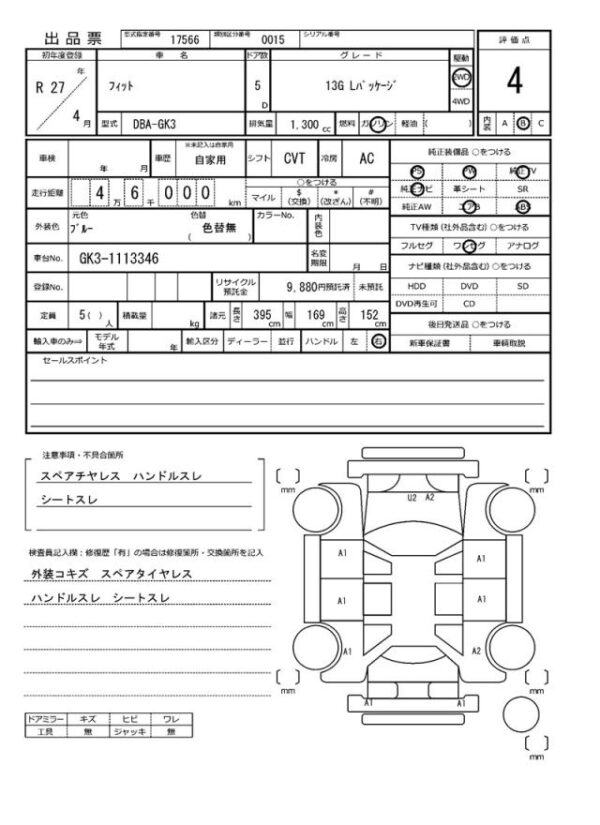 出品票 型式指定番号 17566 類別区分番号 0015 シリアル番号
評価点
4
内装 A B C
初年度登録 車名 ドア数 グレード 駆動
R 27 年 4 月 フィット 5 D 13G Lパッケージ 2WD 4WD
型式 DBA-GK3 排気量 1,300 cc 燃料 ガソリン 軽油 ( )
車検 年 月 車歴 ※未記入は自家用 自家用 シフト CVT 冷房 AC
走行距離 4 6 0 0 0 万 千 km
○をつける
マイル $ (交換) * (改ざん) # (不明)
外装色 元色 ブルー 色替 ( 色替無 ) カラーNo. 内装色
車台No. GK3-1113346 名変期限 月 日
登録No. リサイクル預託金 9,880円預託済 未預託
定員 5( ) 人 積載量 kg 諸元 長さ 395 cm 幅 169 cm 高さ 152 cm
輸入車のみ⇒ モデル年式 年 輸入区分 ディーラー 並行 ハンドル 左 右
純正装備品 ○をつける
PS PW 純正TV
純正ナビ 革シート SR
純正AW エアB ABS
TV種類 (社外品含む) ○をつける
フルセグ ワンセグ アナログ
ナビ種類 (社外品含む) ○をつける
HDD DVD SD
DVD再生可 CD
後日発送品 ○をつける
新車保証書 車輌取説
セールスポイント
注意事項・不具合箇所
スペアチヤレス ハンドルスレ
シートスレ
検査員記入欄：修復歴「有」の場合は修復箇所・交換箇所を記入
外装コキズ スペアタイヤレス
ハンドルスレ シートスレ
ドアミラー キズ ヒビ ワレ
工具 無 ジャッキ 無
mm mm
U2 A2
A1 A1
A1 A1
A1 A2
mm mm
A1 A1
mm